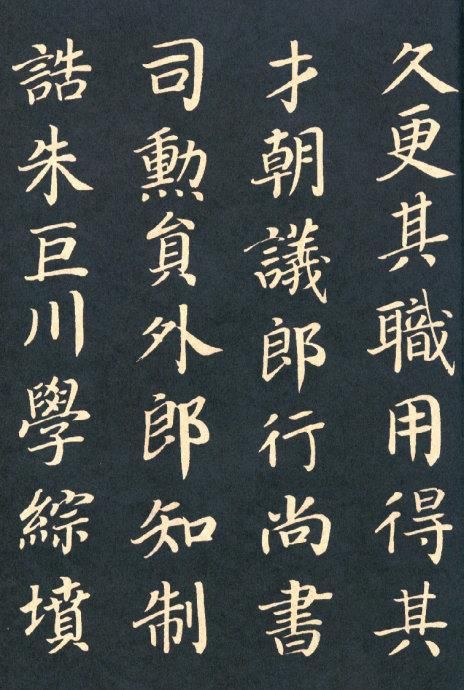 久更其職用得其
才朝議郎行尚書
司勲負外郎知制
誥朱巨川學綜墳